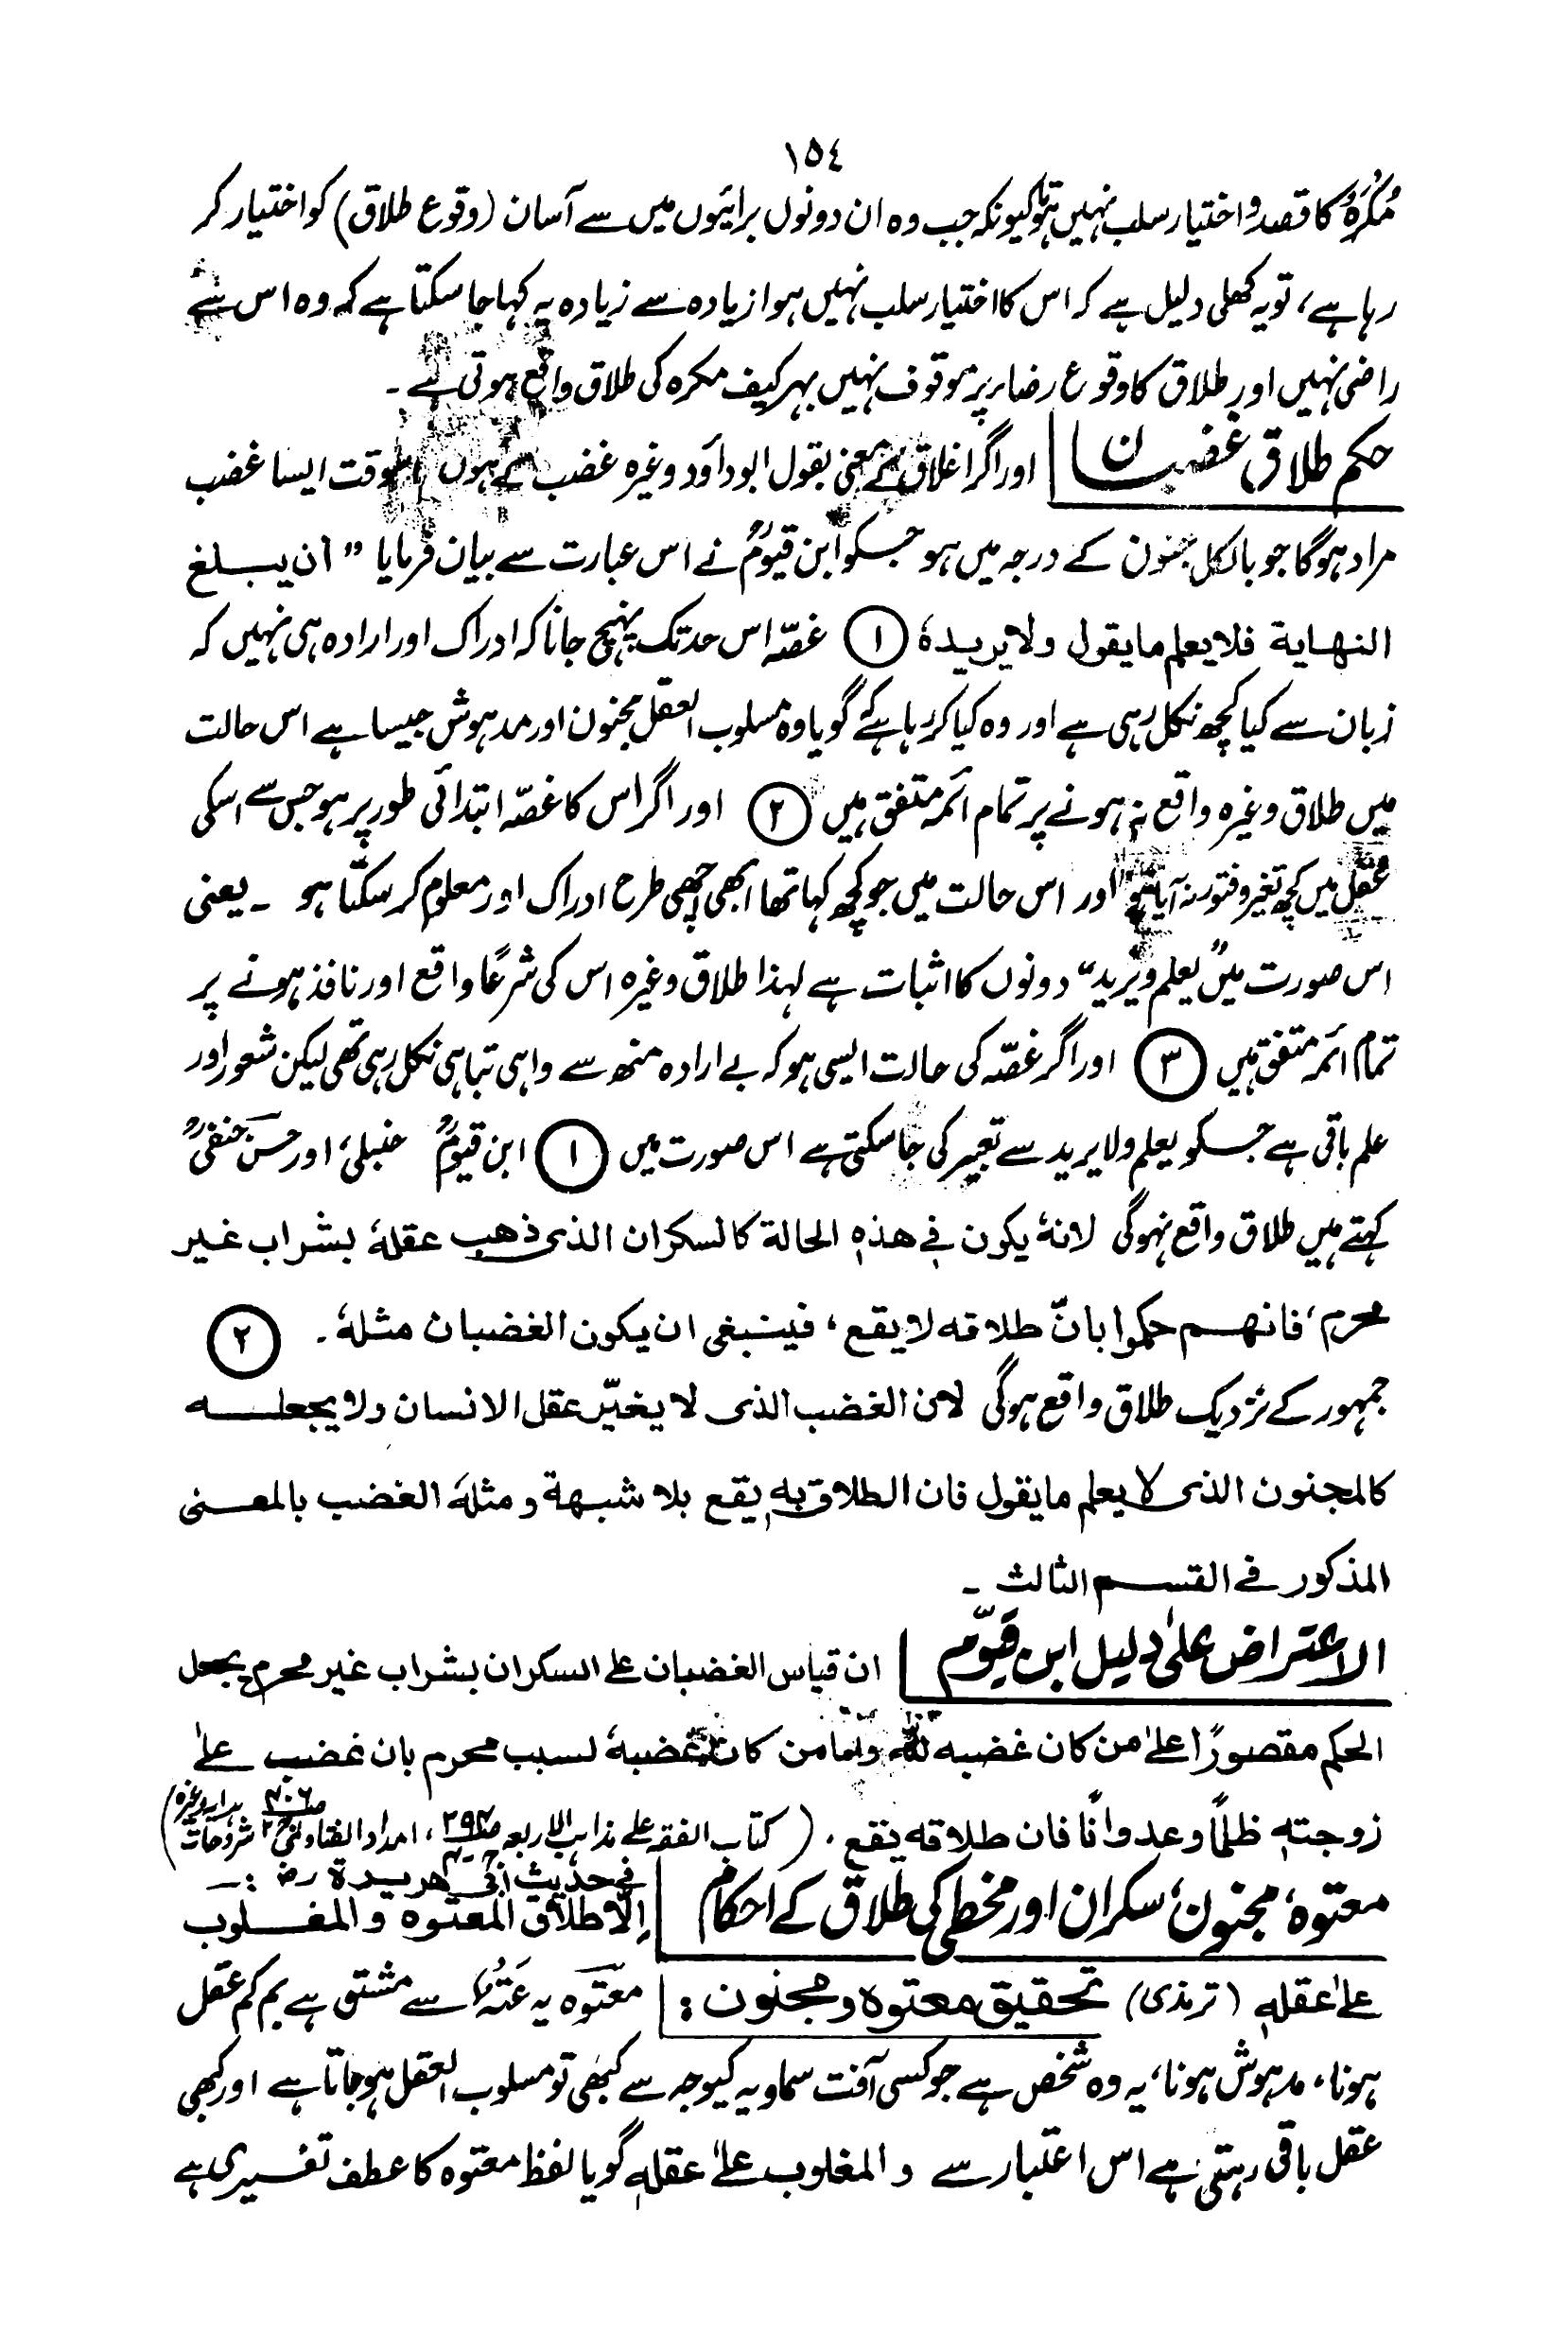 ١٥٤
مُکرَہ کا قصد و اختیار سلب نہیں ہوتا کیونکہ جب وہ ان دونوں برائیوں میں سے آسان (وقوع طلاق) کو اختیار کر
رہا ہے، تو یہ کھلی دلیل ہے کہ اس کا اختیار سلب نہیں ہوا زیادہ سے زیادہ یہ کہا جا سکتا ہے کہ وہ اس سے
راضی نہیں اور طلاق کا وقوع رضاء پر موقوف نہیں بہر کیف مکرہ کی طلاق واقع ہوتی ہے ۔
حکم طلاق غضبان اور اگر اغلاق کے معنی بقول ابوداؤد وغیرہ غضب کے ہوں وقت ایسا غضب
مراد ہوگا جو بالکل جنون کے درجہ میں ہو جسکو ابن قیومؒ نے اس عبارت سے بیان فرمایا " ان يبلغ
النهاية فلا يعلم ما يقول ولا يريدهٗ ① غصّہ اس حد تک پہنچ جانا کہ ادراک اور ارادہ ہی نہیں کہ
زبان سے کیا کچھ نکل رہی ہے اور وہ کیا کر رہا ہے گویا وہ مسلوب العقل مجنون اور مدہوش جیسا ہے اس حالت
میں طلاق وغیرہ واقع نہ ہونے پر تمام ائمہ متفق ہیں ② اور اگر اس کا غصّہ ابتدائی طور پر ہو جس سے اسکی
عقل میں کچھ تغیر و فتور نہ آیا ہو اور اس حالت میں جو کچھ کہا تھا ابھی اچھی طرح ادراک اور معلوم کر سکتا ہو ۔ یعنی
اس صورت میں "یعلم ویرید" دونوں کا اثبات ہے لہذا طلاق وغیرہ اس کی شرعًا واقع اور نافذ ہونے پر
تمام ائمہ متفق ہیں ③ اور اگر غصّہ کی حالت ایسی ہو کہ بے ارادہ منھ سے واہی تباہی نکل رہی تھی لیکن شعور اور
علم باقی ہے جسکو یعلم ولا یرید سے تعبیر کی جا سکتی ہے اس صورت میں ① ابن قیومؒ حنبلی، اور حسن حنفیؒ
کہتے ہیں طلاق واقع نہوگی لانهٗ يكون في هذهِ الحالة كالسكران الذي ذهب عقلهٗ بشراب غير
محرم، فانهم حكموا بانّ طلاقه لا يقع، فينبغي ان يكون الغضبان مثلهٗ ۔ ②
جمہور کے نزدیک طلاق واقع ہوگی لان الغضب الذي لا يغيّر عقل الانسان ولا يجعله
كالمجنون الذي لا يعلم ما يقول فان الطلاق بهٖ يقع بلا شبهة و مثلهٗ الغضب بالمعنى
المذكور في القسم الثالث ۔
الاعتراض علیٰ دلیل ابن قیوّم ان قياس الغضبان على السكران بشراب غير محرم يجعل
الحكم مقصورًا علیٰ من كان غضبه لله واما من كان غضبهٗ لسبب محرم بان غضب علیٰ
زوجتهٖ ظلمًا وعدوانًا فان طلاقه يقع. (کتاب الفقہ علی مذاہب الاربعہ ، امداد الفتاویٰ شروحات)
معتوہ، مجنون، سکران اور مخطی کی طلاق کے احکام في حديث أبي هريرة رض :ـ
اِلّا طلاق المعتوه والمغلوب
علیٰ عقلهٖ (ترمذی) تحقیق معتوہ و مجنون : معتوہ یہ عَتَہٌ سے مشتق ہے بم کم عقل
ہونا، مدہوش ہونا، یہ وہ شخص ہے جو کسی آفت سماویہ کیوجہ سے کبھی تو مسلوب العقل ہو جاتا ہے اور کبھی
عقل باقی رہتی ہے اس اعتبار سے والمغلوب علیٰ عقلهٖ گویا لفظ معتوہ کا عطف تفسیری ہے